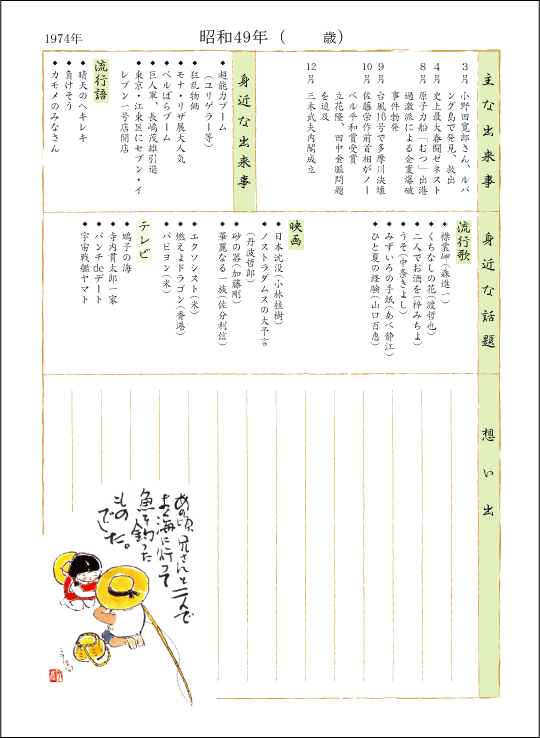 1974年
昭和49年(　　歳)
主な出来事
3月 小野田寛郎さん、ルバ
ング島で発見、救出
4月 史上最大春闘ゼネスト
8月 原子力船「むつ」出港
過激派による企業爆破
事件勃発
9月 台風16号で多摩川決壊
10月 佐藤栄作前首相がノー
ベル平和賞受賞
立花隆、田中金脈問題
を追及
12月 三木武夫内閣成立
身近な出来事
◆超能力ブーム
(ユリゲラー等)
◆狂乱物価
◆モナ・リザ展大人気
◆ベルばらブーム
◆巨人軍、長嶋茂雄引退
◆東京・江東区にセブン・イ
レブン一号店開店
流行語
◆晴天のヘキレキ
◆負けそう
◆カモメのみなさん
身近な話題
流行歌
襟裳岬(森進一)
◆くちなしの花(渡哲也)
◆二人でお酒を(梓みちよ)
◆うそ(中条きよし)
◆みずいろの手紙(あべ静江)
◆ひと夏の経験(山口百恵)
映画
◆日本沈没(小林桂樹)
◆ノストラダムスの大予言
(丹波哲郎)
◆砂の器(加藤剛)
◆華麗なる一族(佐分利信)
◆エクソシスト(米)
◆燃えよドラゴン(香港)
◆パピヨン(米)
テレビ
◆鳩子の海
◆寺内貫太郎一家
◆パンチdeデート
◆宇宙戦艦ヤマト
想い出
あの頃、兄さんと二人で
よく海に行って
魚を釣った
もの
でした。